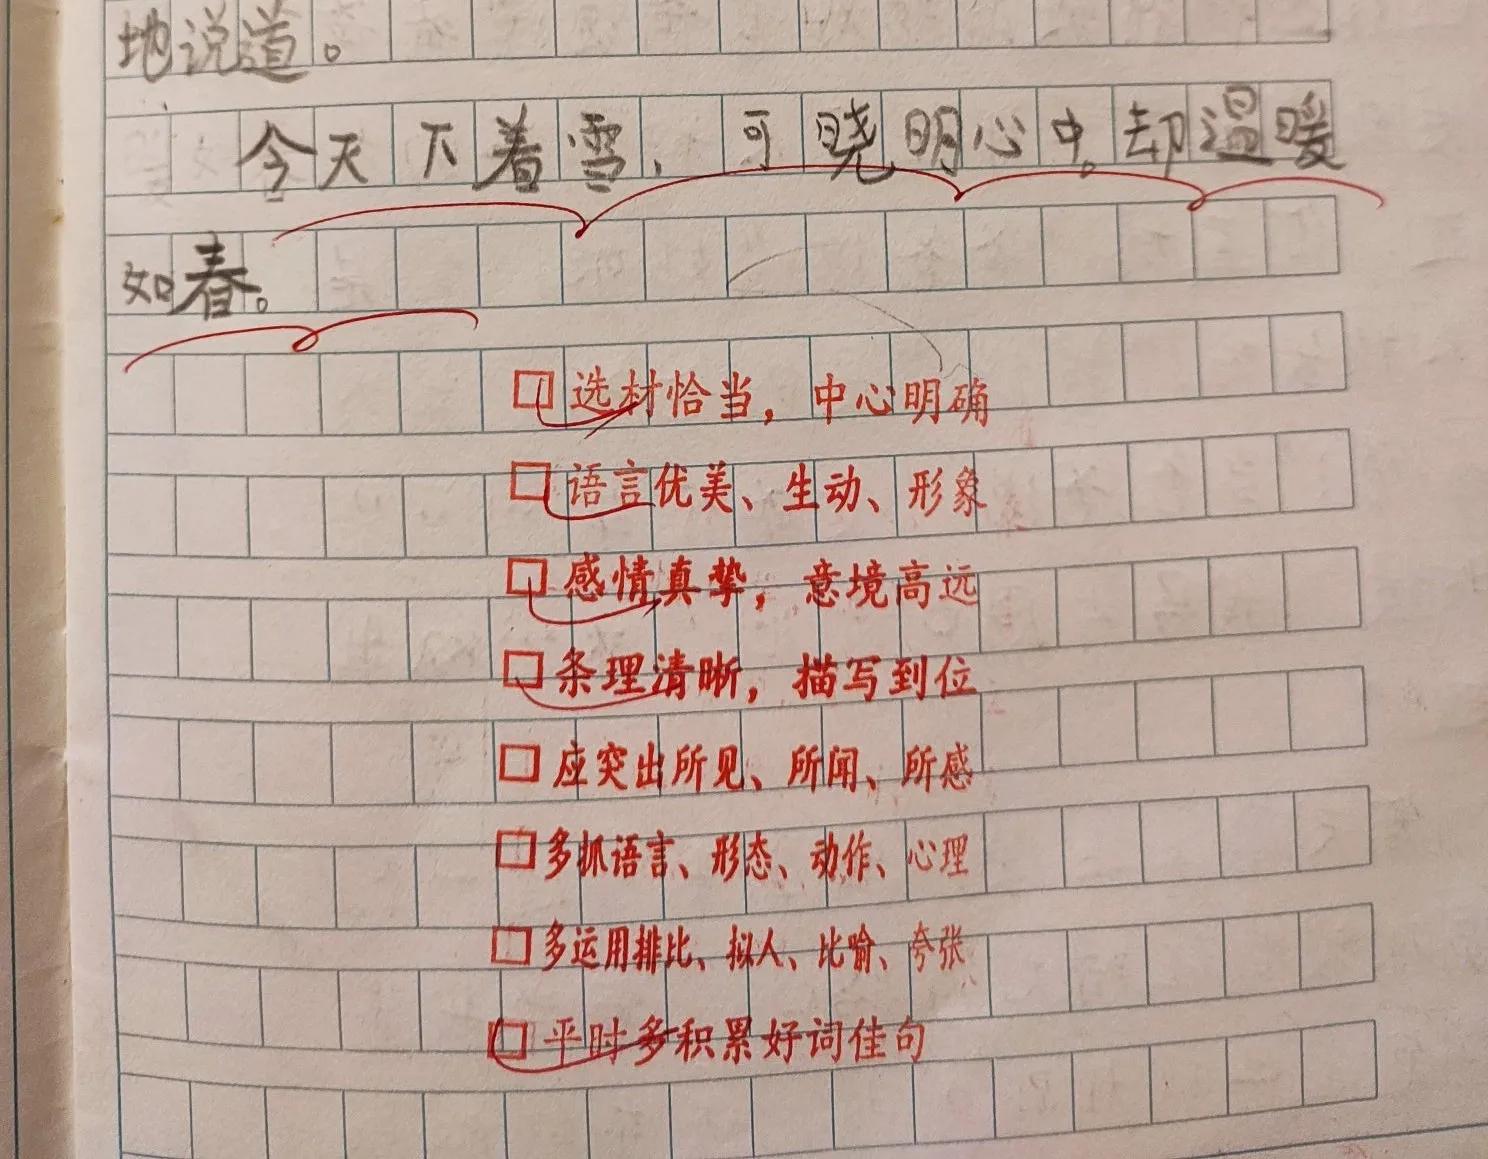 地说道。
今天下着雪，可晓明心中却温暖
如春。
□选材恰当，中心明确
□语言优美、生动、形象
□感情真挚，意境高远
□条理清晰，描写到位
□应突出所见、所闻、所感
□多抓语言、形态、动作、心理
□多运用排比、拟人、比喻、夸张
□平时多积累好词佳句